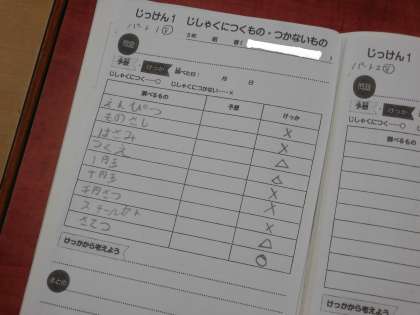 じっけん1 じしゃくにつくもの・つかないもの
パート1
3年 組 番(
問題
予想 けっか 調べた日: 月 日
じしゃくにつく……○ じしゃくにつかない……×
調べるもの 予想 けっか
えんぴつ ×
ものさし ×
はさみ △
つくえ △
1円玉 ×
十円玉 ×
千円さつ ×
スチールカン △
さてつ ○
けっかから考えよう
まとめ
じっけん1
パート2
問題
予想 けっか
じしゃくにつく……○
調べるもの
けっかから考えよう